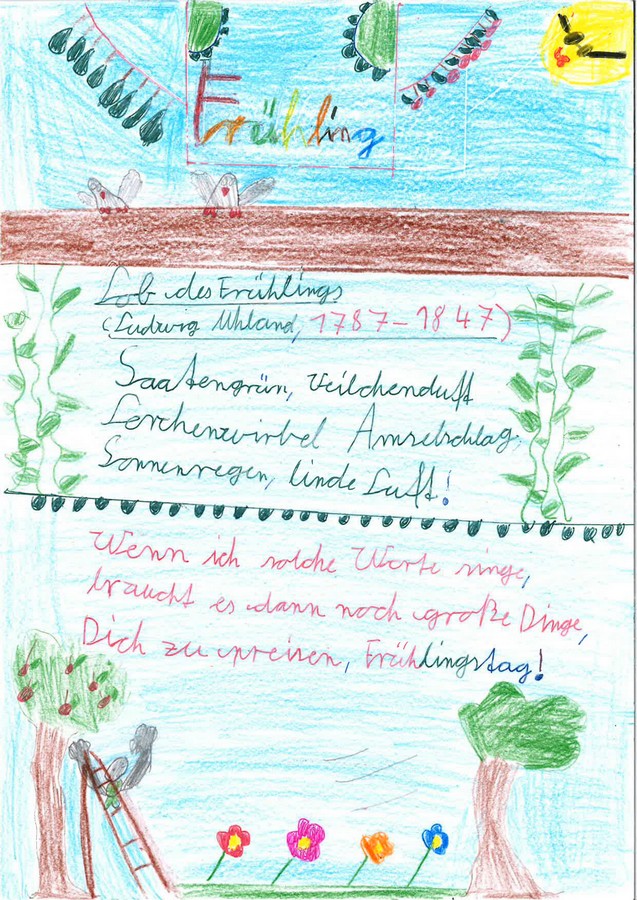 Frühling
Lob des Frühlings
(Ludwig Uhland, 1787-1847)
Saatengrün, Veilchenduft
Lerchenwirbel Amselschlag,
Sonnenregen, linde Luft!
Wenn ich solche Worte singe,
braucht es dann noch große Dinge,
Dich zu preisen, Frühlingstag!